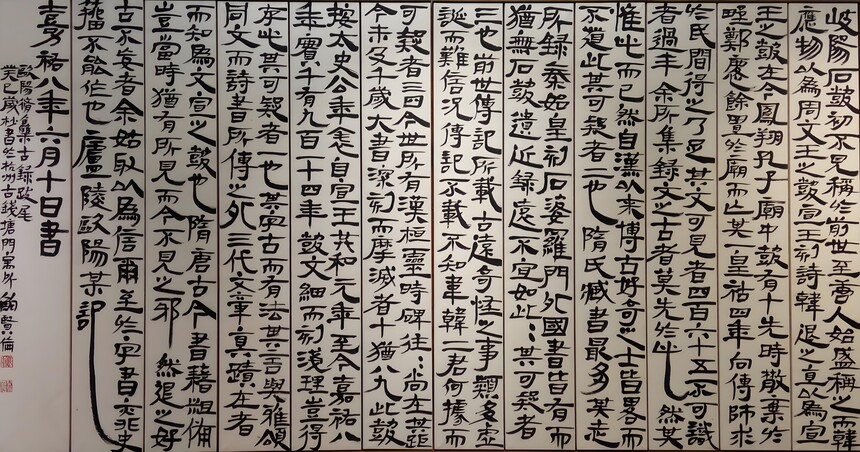 岐陽石鼓初不見稱於前世至唐人始盛稱之而韓
應物以為周文王之鼓宣王刻詩韓退之直以為宣
王之鼓在今鳳翔孔子廟中鼓有十先時散棄於
野鄭慶餘置於廟而亡其一皇祐四年向傳師求
於民間得之乃足其文可見者四百六十五不可識
者過半余所集録文之古者莫先於此然其
惟此而已然自漢以來博古好奇之士皆畧而
不道此其可疑者二也隋氏臧書最多其志
所録秦始皇刻石婆羅門外國書皆有而
猶無石鼓遺近録遠不宜如此:其可疑者
三也前世傳記所載古遠奇怪之事類多虛
誕而難信況傳記不載不知韋韓二君何據而
可疑者三四今世所有漢桓靈時碑往:尚在其距
今未及千歲大書深刻而摩滅者十猶八九此鼓
按太史公年表自宣王共和元年至今嘉祐八
年實千有九百一十四年鼓文細而刻淺理豈得
存此其可疑者一也其字古而有法其言與雅頌
同文而詩書所傳之外三代文章真蹟在者
而知為文宣之鼓也隋唐古今書籍粗備
豈當時猶有所見而今不見之邪然退之好
古不妄者余姑取以為信爾至於字書亦非史
籀不能作也廬陵歐陽某記
嘉祐八年六月十日書
歐陽脩集古録跋尾
癸巳歲杪書於杭州古錢塘門客外鮑賢倫